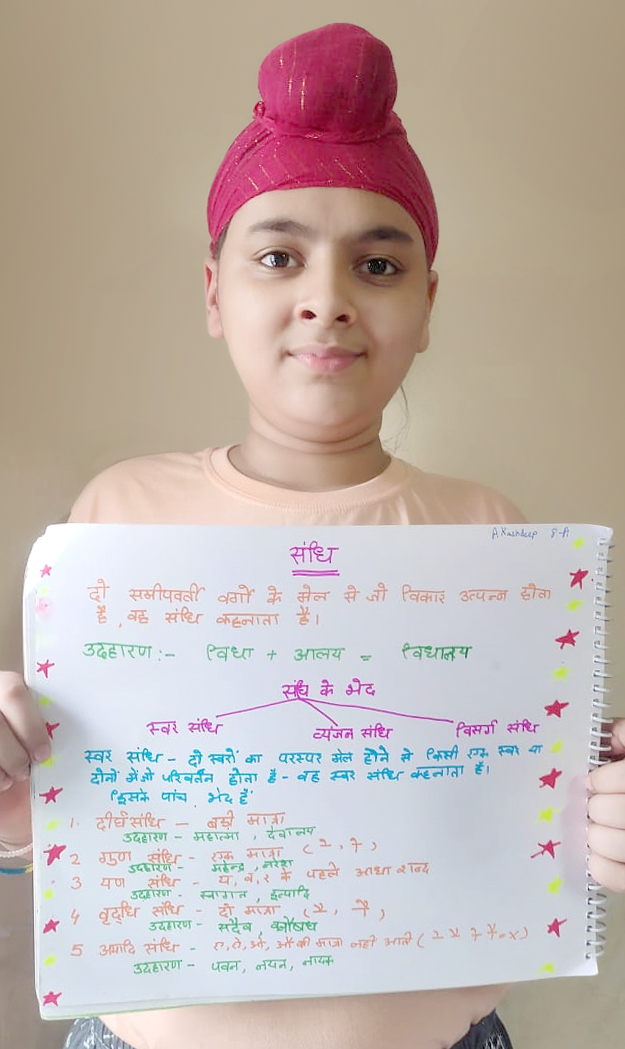 AKashdeep 8-A
संधि
दो समीपवर्ती वर्णो के मेल से जो विकार उत्पन्न होता
है, वह संधि कहलाता है।
उदहारण :- विधा + आलय = विधालय
संधि के भेद
स्वर संधि व्यंजन संधि विसर्ग संधि
स्वर संधि - दो स्वरों का परस्पर मेल होने से किसी एक स्वर या
दोनों में जो परिवर्तन होता है - वह स्वर संधि कहलाता है।
इसके पांच भेद हैं
1. दीर्घ संधि - बड़ी मात्रा
उदहारण - महात्मा, देवालय
2 गुण संधि - एक मात्रा ( े, ो )
उदहारण - महेन्द्र, नरेश
3 यण संधि - य, व, र के पहले आधा शब्द
उदहारण - स्वागत, इत्यादि
4 वृद्धि संधि - दो मात्रा ( ै, ौ )
उदहारण - सदैव, औषध
5 अयादि संधि - ए, ऐ, ओ, औ की मात्रा नही आती ( े ै ो ौ = x )
उदहारण - पवन, नयन, नायक